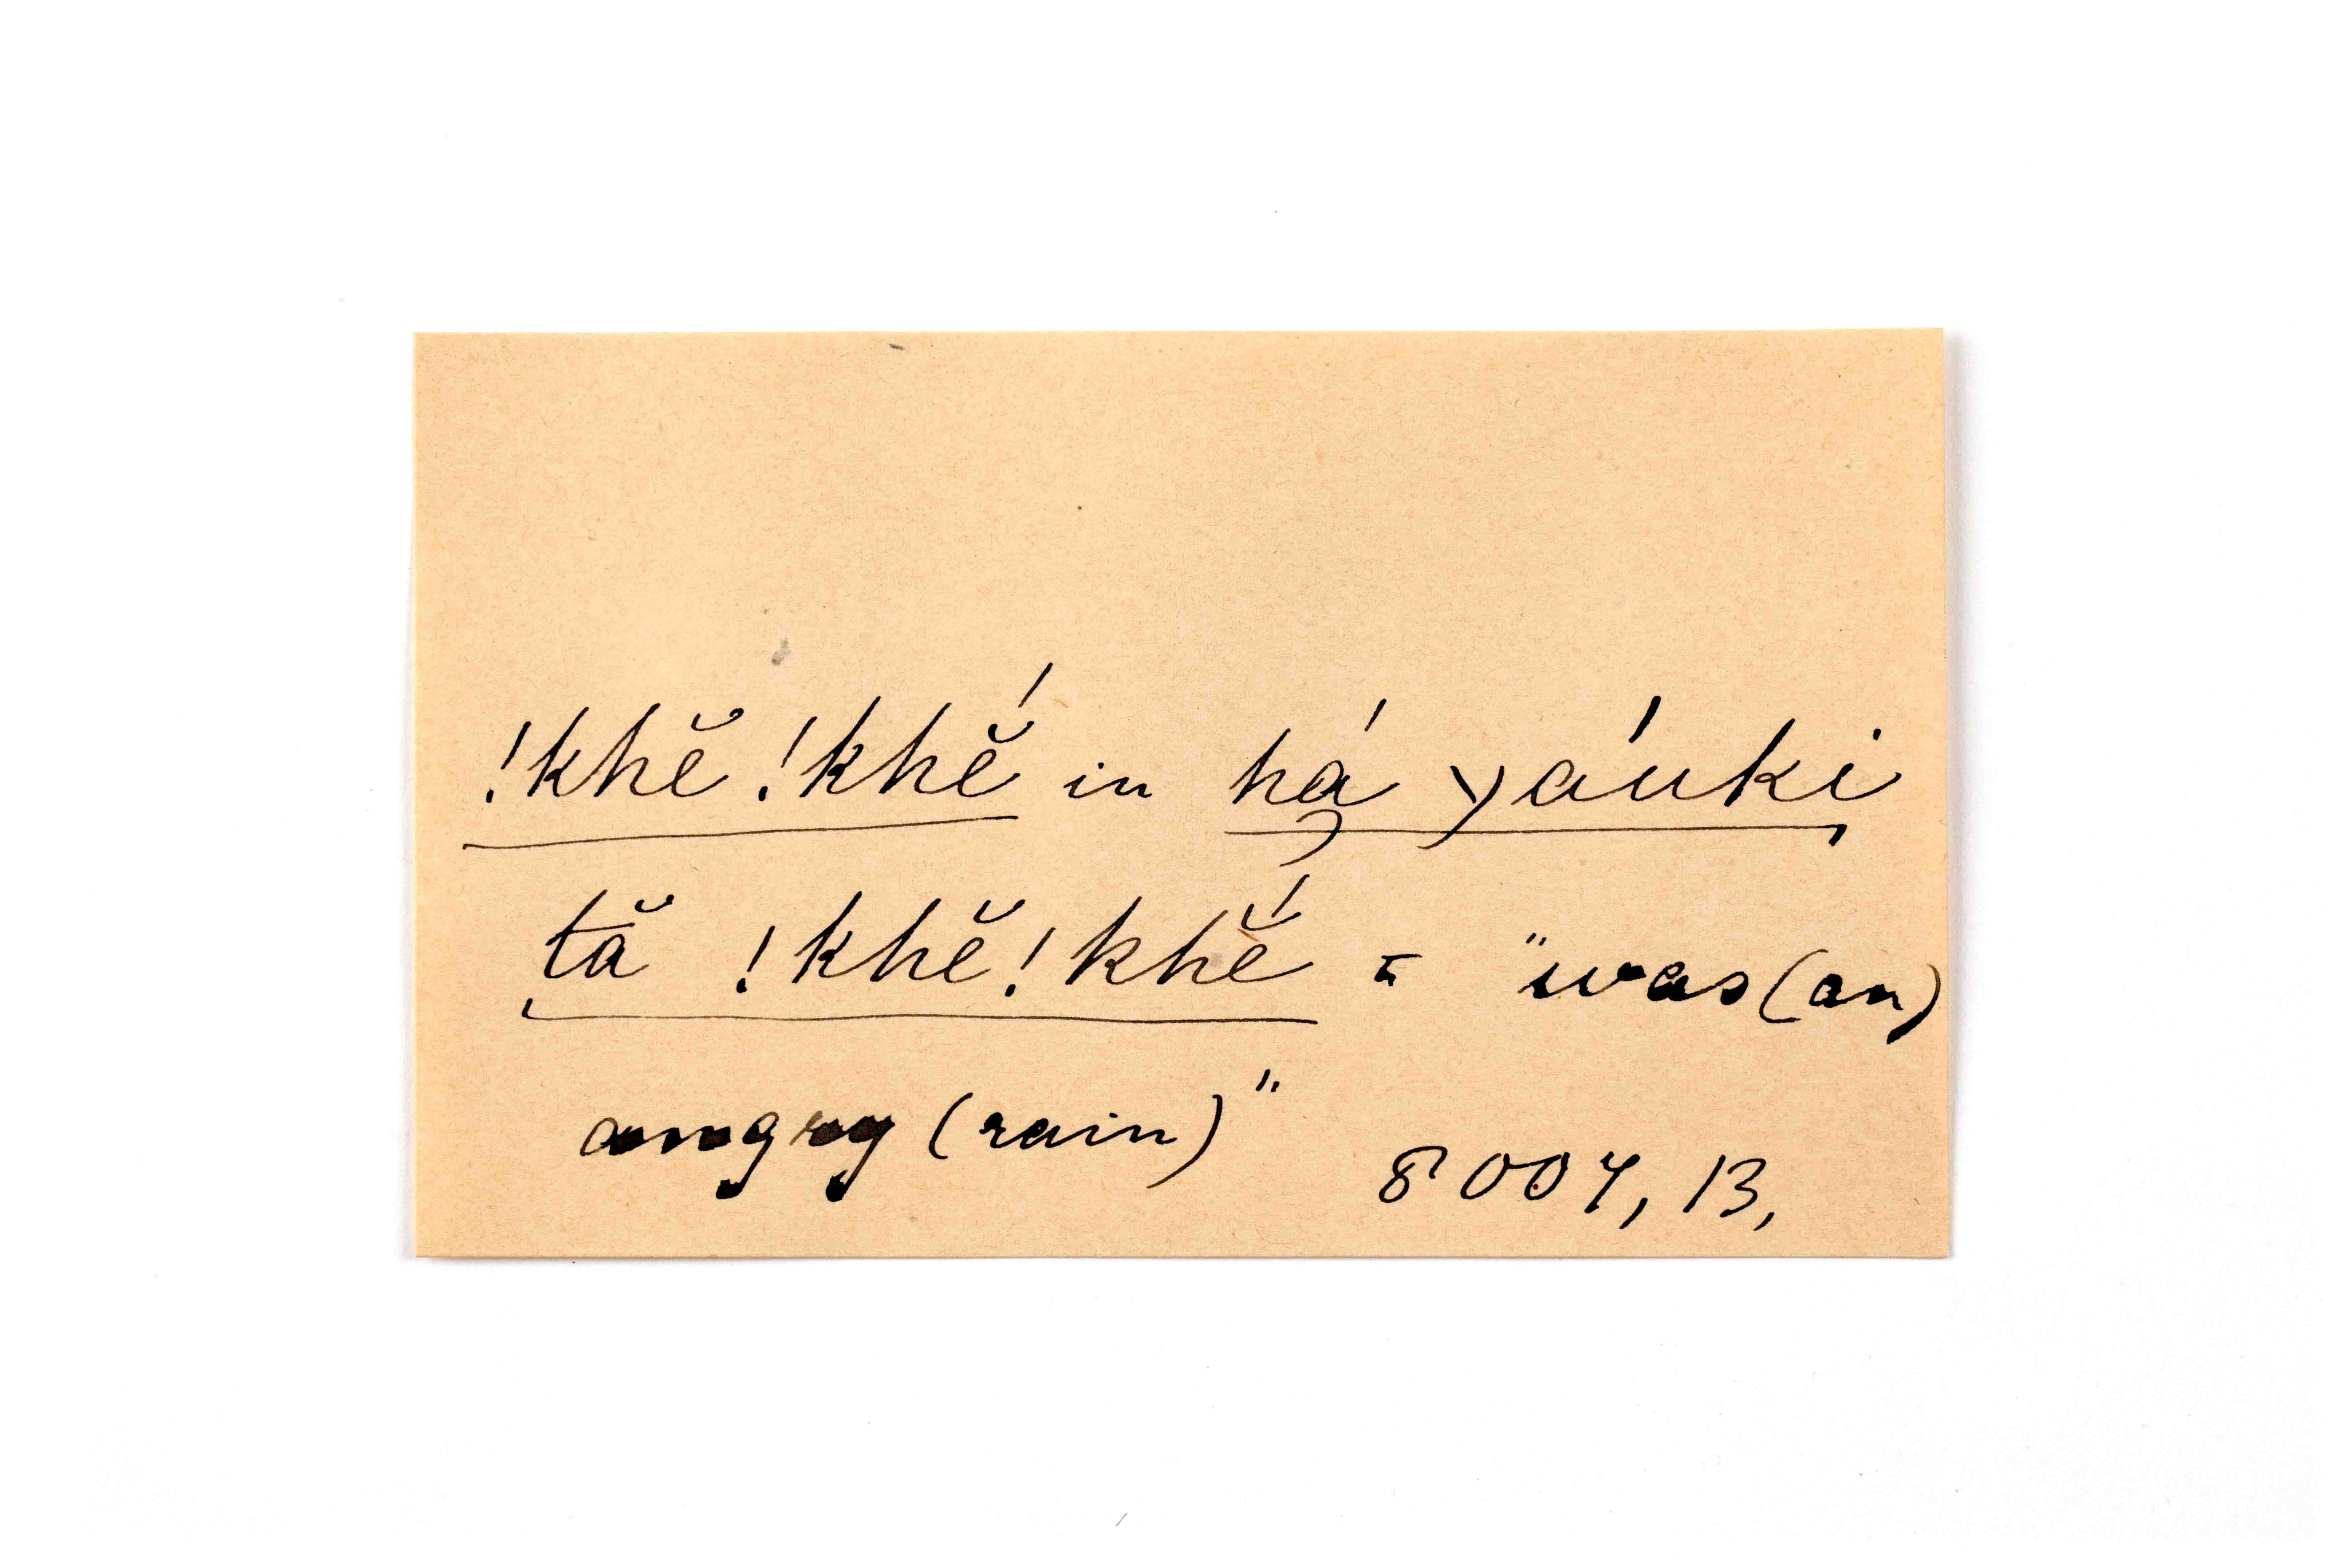 !khĕ !khĕ́ in há̦ \)áuki
tă !khĕ!khĕ́ = "was (an)
angry (rain)"
8004, 13,